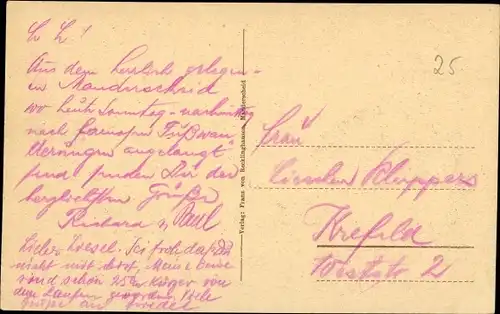 L. L.!
Aus dem herrlich gelegen-
en Manderscheid
wo heute Sonntag-nachmittag
nach famosen Fußwan
derungen angelangt
sind senden Dir die
herzlichsten Grüße
Richard & Paul
Liebes Liesel. Sei froh daß Du
nicht mit bist, Meine Beine
sind schon 25 cm kürzer von
dem Laufen geworden. Viele
Grüße an Friedel
Verlag: Franz von Recklinghausen, Manderscheid
25
Frau
Lieschen Klüppers
Krefeld
Weststr 2